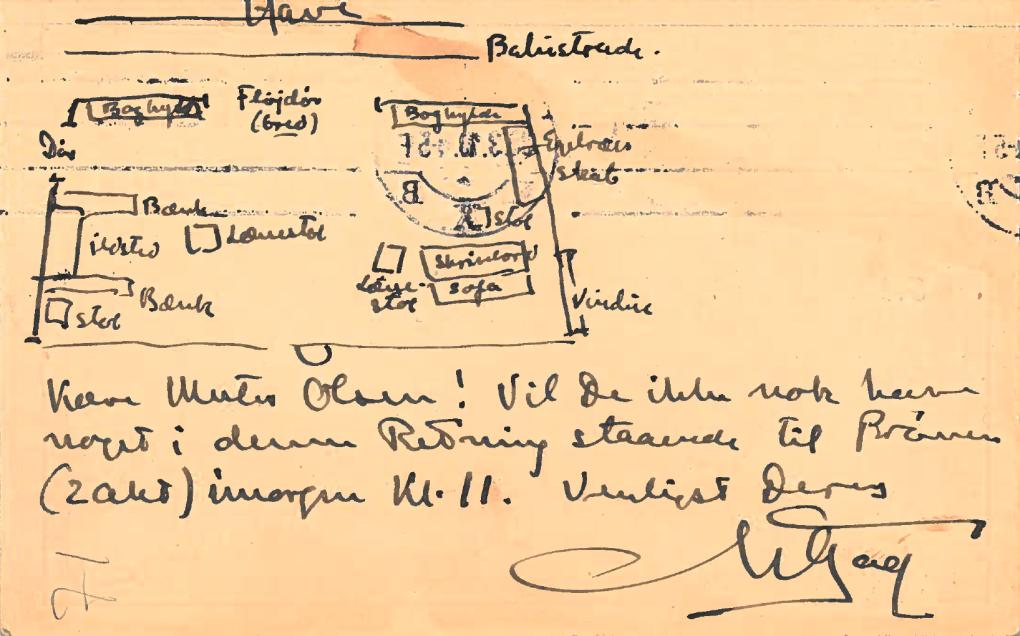 Have
Balustrade.
Boghylde
Fløjdør
(bred)
Boghylde
Dör
Egetræs
skab
Bænk
Stol
ildsted
Lænestol
Skrivebord
Læne-
stol
Sofa
Bænk
Vindue
Stol
Kære Mester Olsen! Vil De ikke nok have
noget i denne Retning staaende til Prøven
(2 akt) imorgen Kl. 11. Venligst Deres